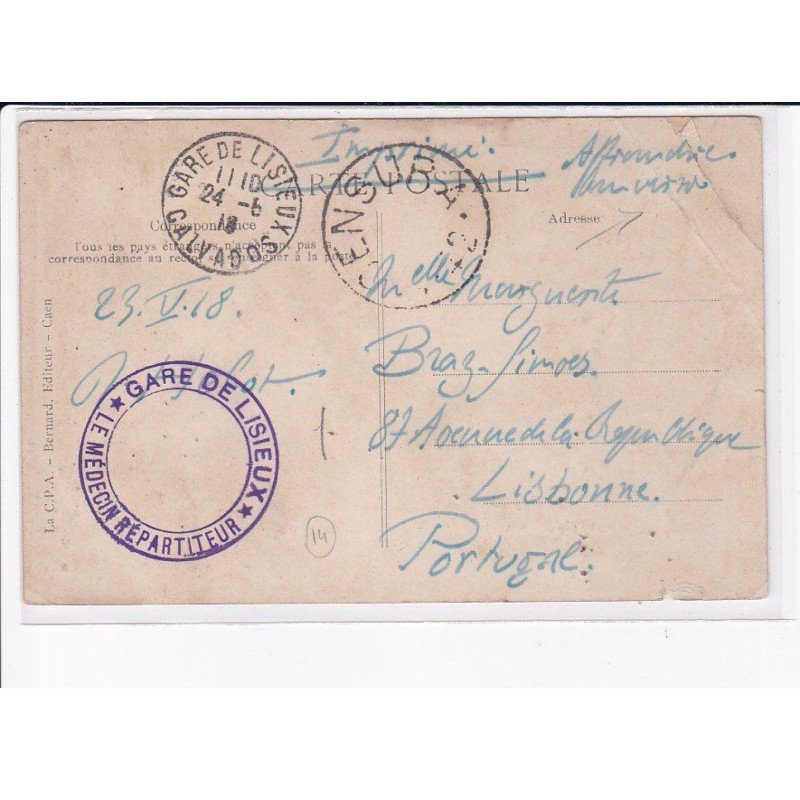 Imprimé.
CARTE POSTALE
Correspondance
Adresse
Tous les pays étrangers n'acceptent pas la
correspondance au recto se renseigner à la poste
GARE DE LISIEUX
11 10
24 - 5
18
CALVADOS
CENSURA
23. V. 18.
Melle Marguerite
Braz-Simoes
87 Avenue de la République
Lisbonne.
Portugal.
★ GARE DE LISIEUX ★
LE MÉDECIN RÉPARTITEUR
14
La C.P.A. - Bernard, Editeur - Caen